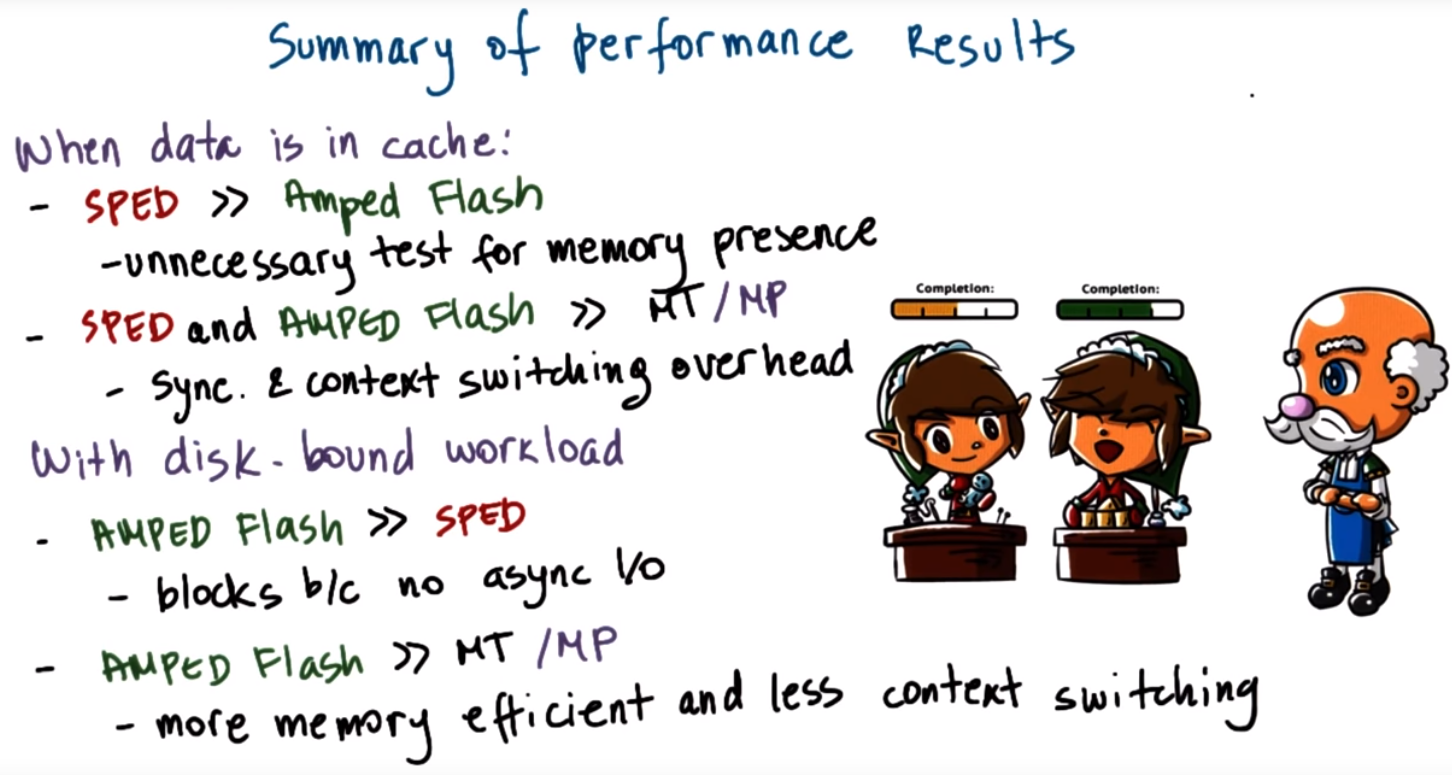 Summary of performance Results
When data is in cache:
- SPED >> Amped Flash
- unnecessary test for memory presence
- SPED and AMPED Flash >> MT / MP
- Sync. & context switching overhead
With disk-bound workload
- AMPED Flash >> SPED
- blocks b/c no async I/O
- AMPED Flash >> MT / MP
- more memory efficient and less context switching
Completion:
Completion: